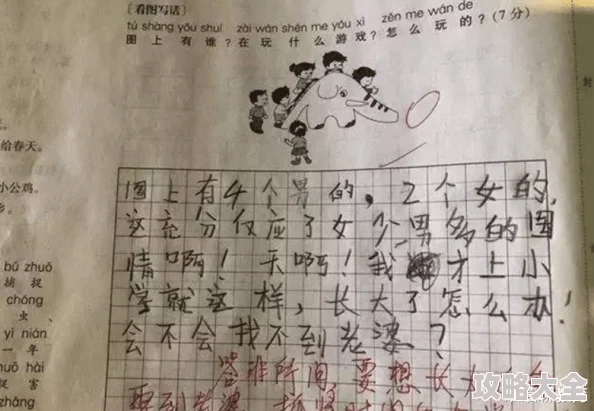 〔看图写话〕
tú shàng yǒu shuí zài wán shén me yóu xì zěn me wán de
图上有谁？在玩什么游戏？怎么玩的？（7分）
给春天。
小公鸡。
bǔ zhuō
捕捉
chóng
虫、
yì nián
一年
huō hài
捉害
封
图上有4个男的，2个女的，
这充分仅应了女少男多的国
情啊！天啊！我才上小
学就这样，长大了怎么办！
会不会找不到老婆？
答非所问，要想长大
要到老婆
攻略大全